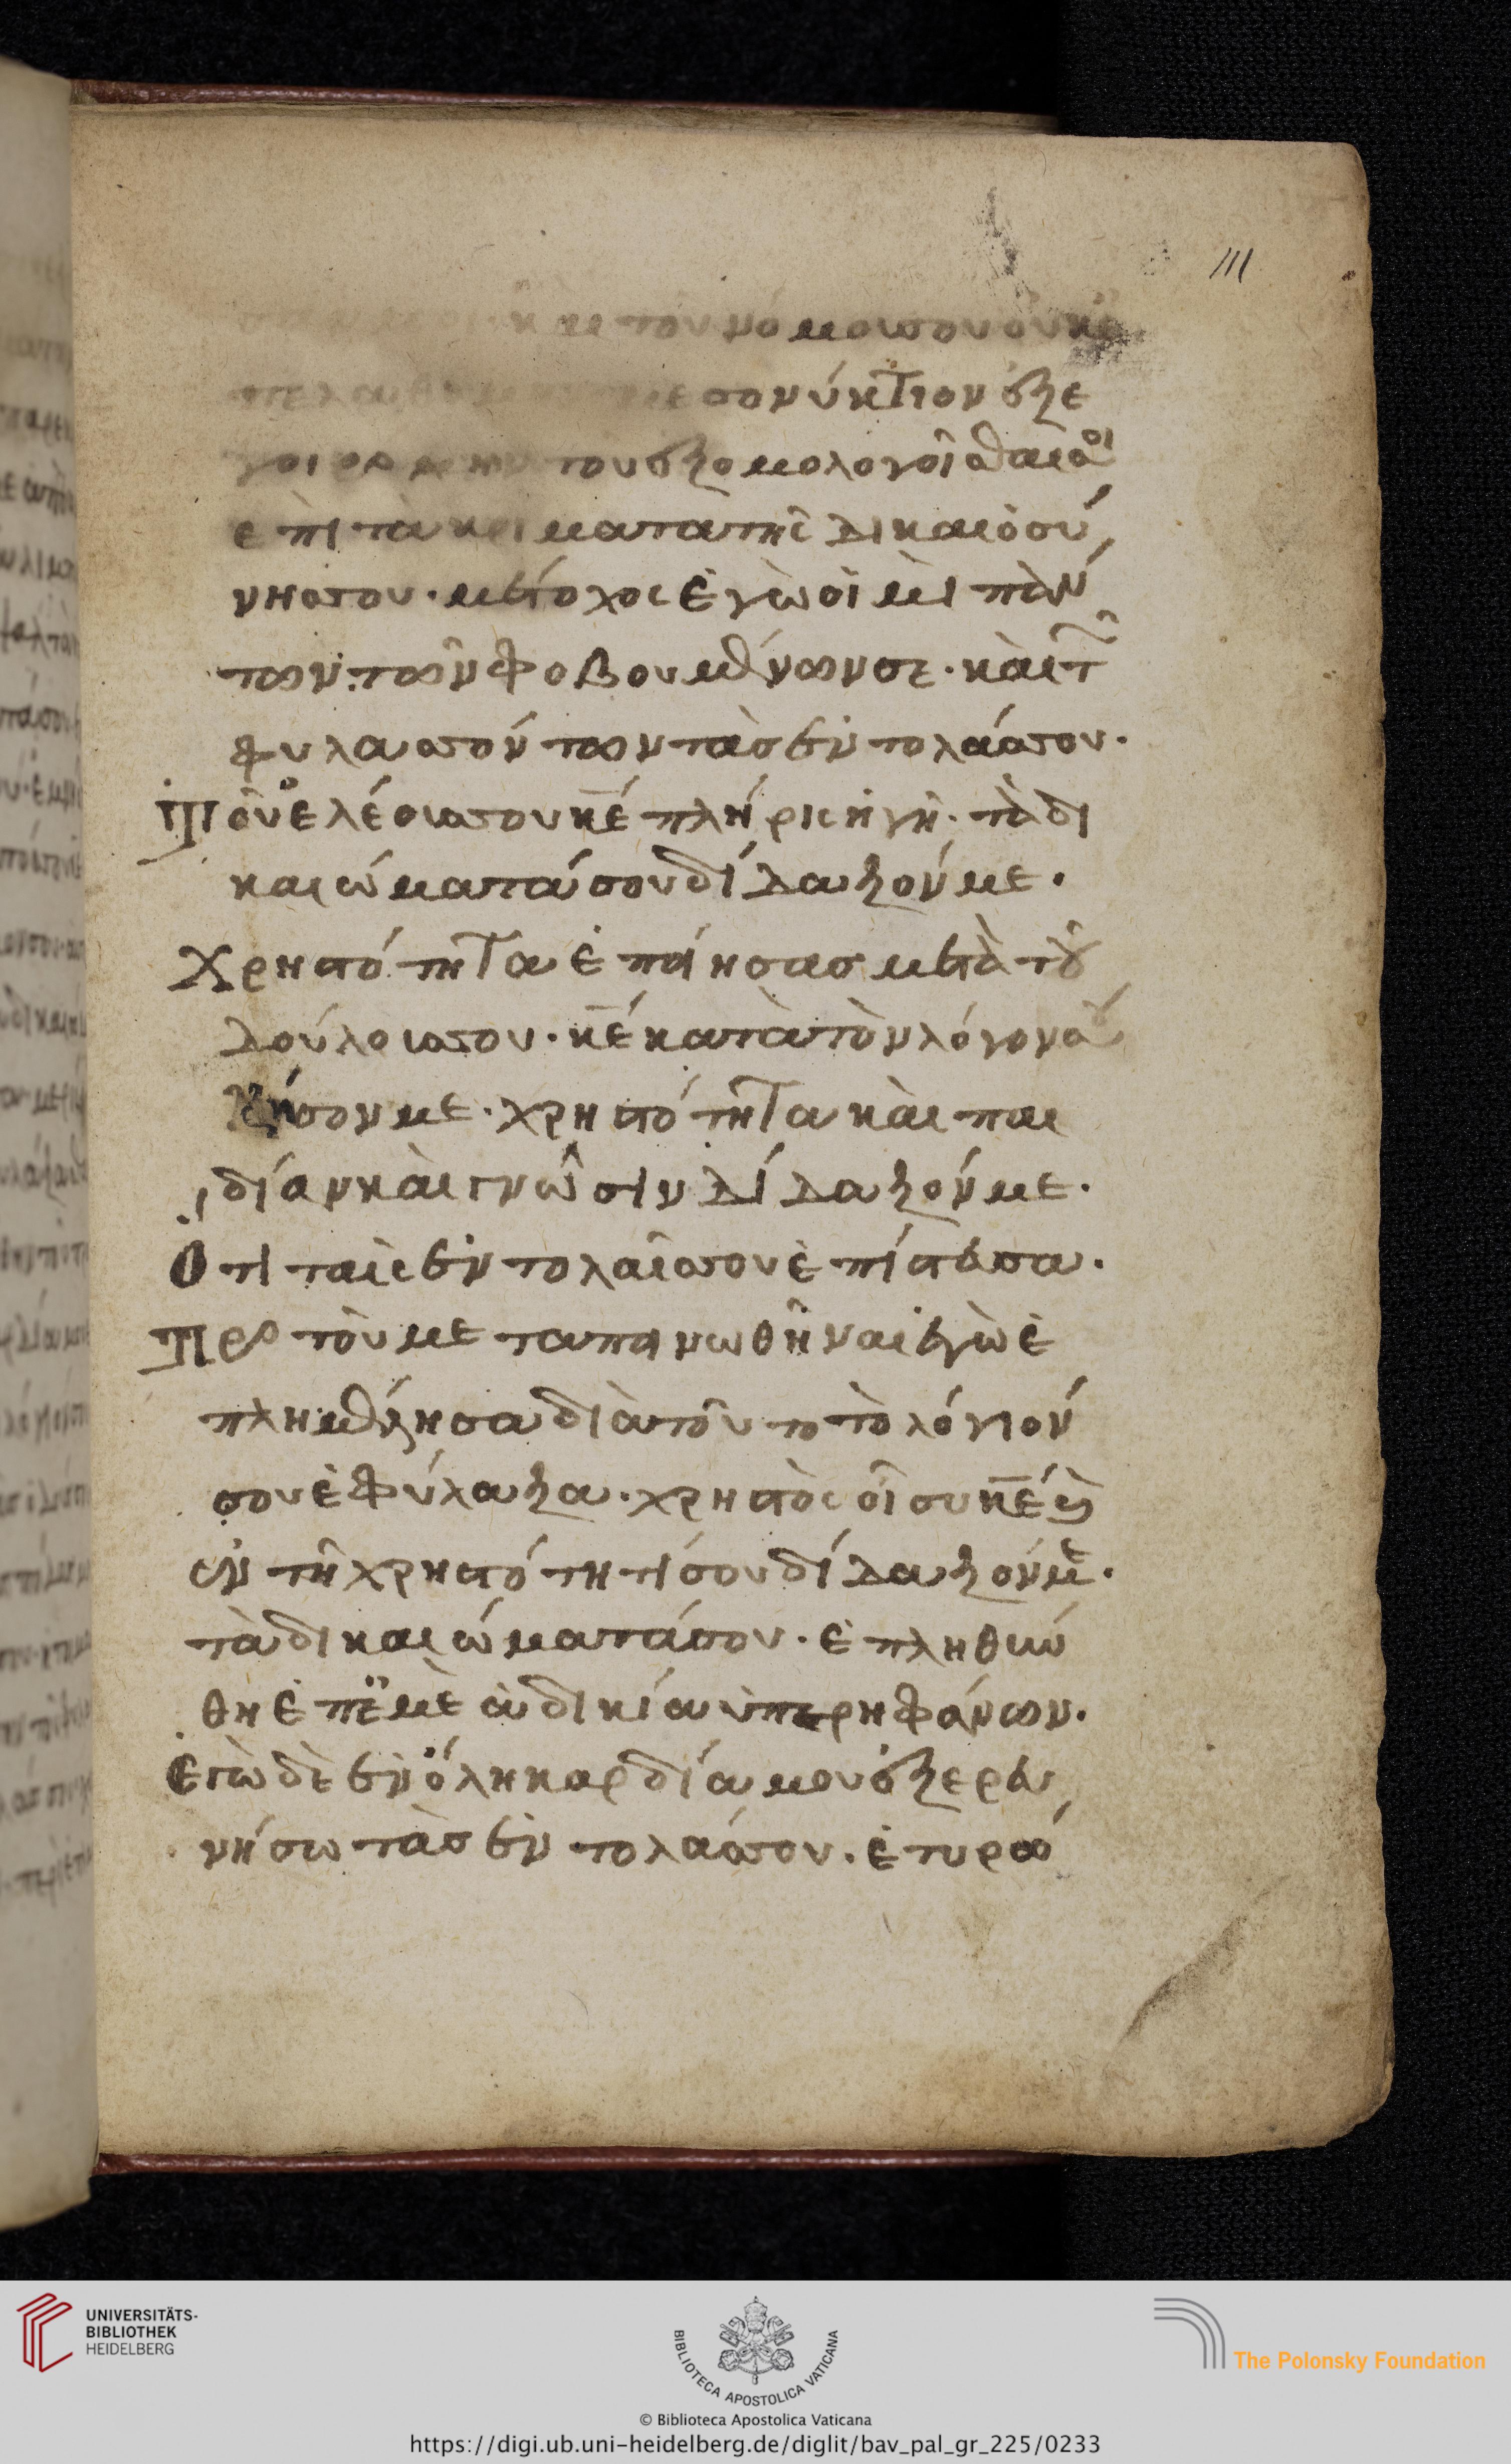 111
καὶ τοῦ νόμου σου οὐκ ἐ
μεσονύκτιον ἐξε
τοῦ ἐξομολογοῖσθαί σοι
ἐπὶ τὰ κρίματα τῆς δικαιοσύ
νησσου. μέτοχος ἐγὼ οἰμὶ πάν
των τῶν φοβουμένων σε. καὶ τῶν
φυλασσόντων τὰσ ἐντολάσσου.
Τοῦ ἐλέουσσου κε πλήρις ἡ γῆ. τὰ δι
καιώματά σου δίδαξόν με.
Χρηστότητα ἐποίησας μετὰ τοῦ
δούλουσσου. κε κατὰ τὸν λόγον σου
ζῆσον με. χρηστότητα καὶ παι
δίαν καὶ γνῶσιν δίδαξόν με.
Ὅτι ταῖς ἐντολαῖσσου ἐπίστευσα.
Προ τοῦ με ταπινωθῆναι ἐγὼ ἐ
πλημμέλησα διὰ τοῦτο τὸ λόγιόν
σου ἐφύλαξα. χρηστὸς οἶ συ κε καὶ
ἐν τῇ χρηστότητί σου δίδαξόν με.
τὰ δικαιώματά σου. ἐπληθύν
θη ἐπ' ἐμὲ ἀδικία ὑπερηφάνων.
Ἐγὼ δὲ ἐν ὅλη καρδία μου ἐξερευ
νήσω τὰσ ἐντολάσσου. ἐτυρώ
UNIVERSITÄTS-
BIBLIOTHEK
HEIDELBERG
BIBLIOTECA APOSTOLICA VATICANA
The Polonsky Foundation
© Biblioteca Apostolica Vaticana
https://digi.ub.uni-heidelberg.de/diglit/bav_pal_gr_225/0233